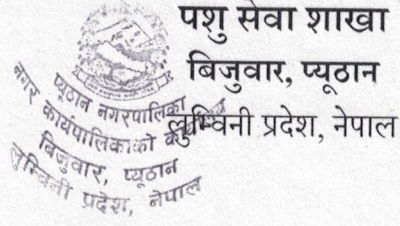 पशु सेवा शाखा
बिजुवार, प्यूठान
लुम्विनी प्रदेश, नेपाल
प्यूठान नगरपालिका
नगर कार्यपालिकाको
बिजुवार, प्यूठान
लुम्विनी प्रदेश, नेपाल